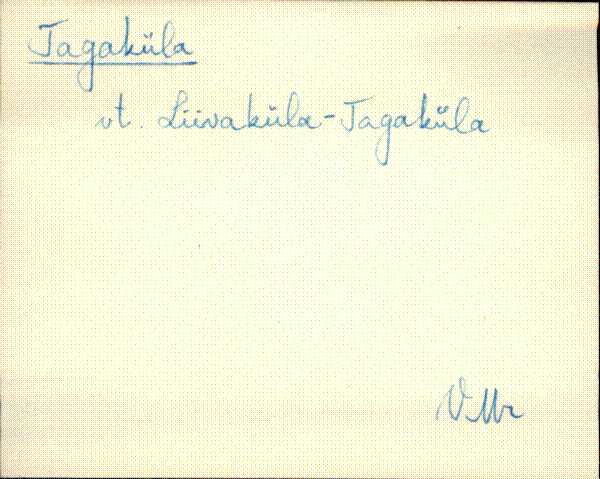 Tagaküla
vt. Liivaküla-Tagaküla
VMr